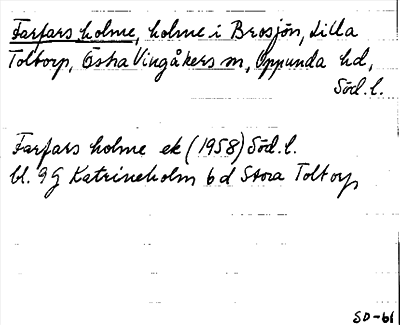 Farfars holme, holme i Brosjön, Lilla
Toltorp, Östra Vingåkers sn, Oppunda hd,
Söd. l.
Farfars holme ek (1958) Söd. l.
bl. 9 G Katrineholm 6 d Stora Toltorp
SD-61